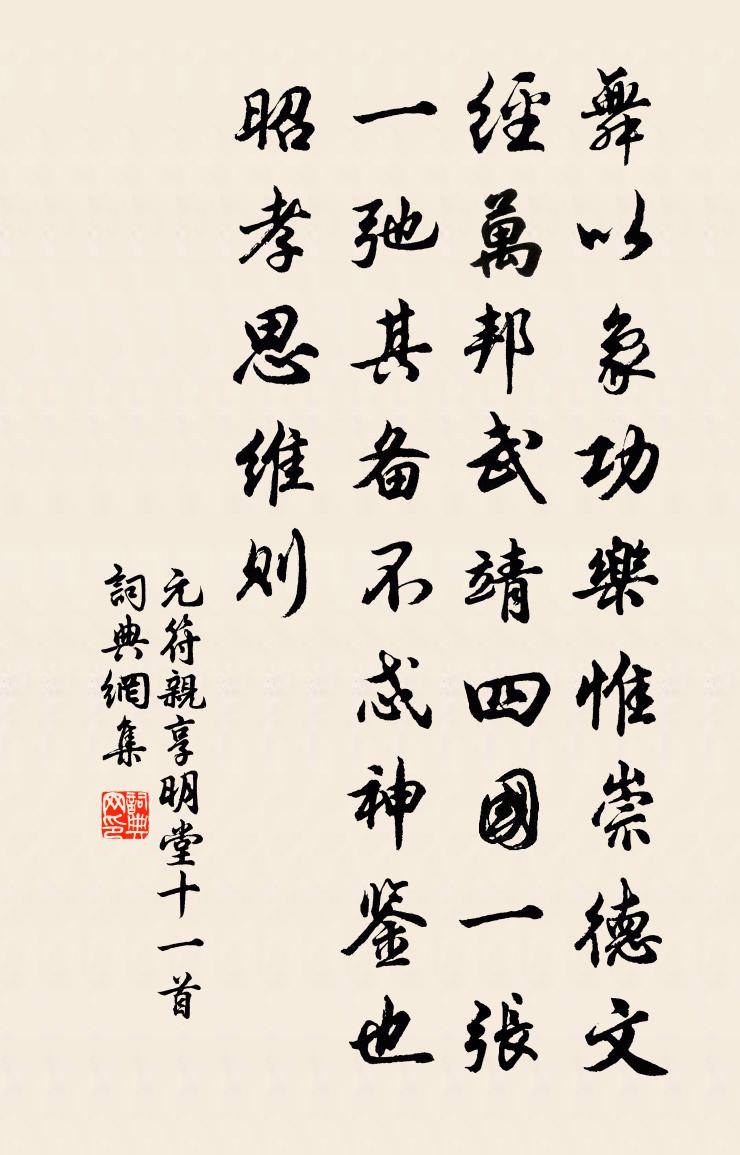 舞以象功樂惟崇德文
經萬邦武靖四國一張
一弛其备不忒神鉴也
昭孝思維则
元符親享明堂十一首
詞典網集
詞典网印